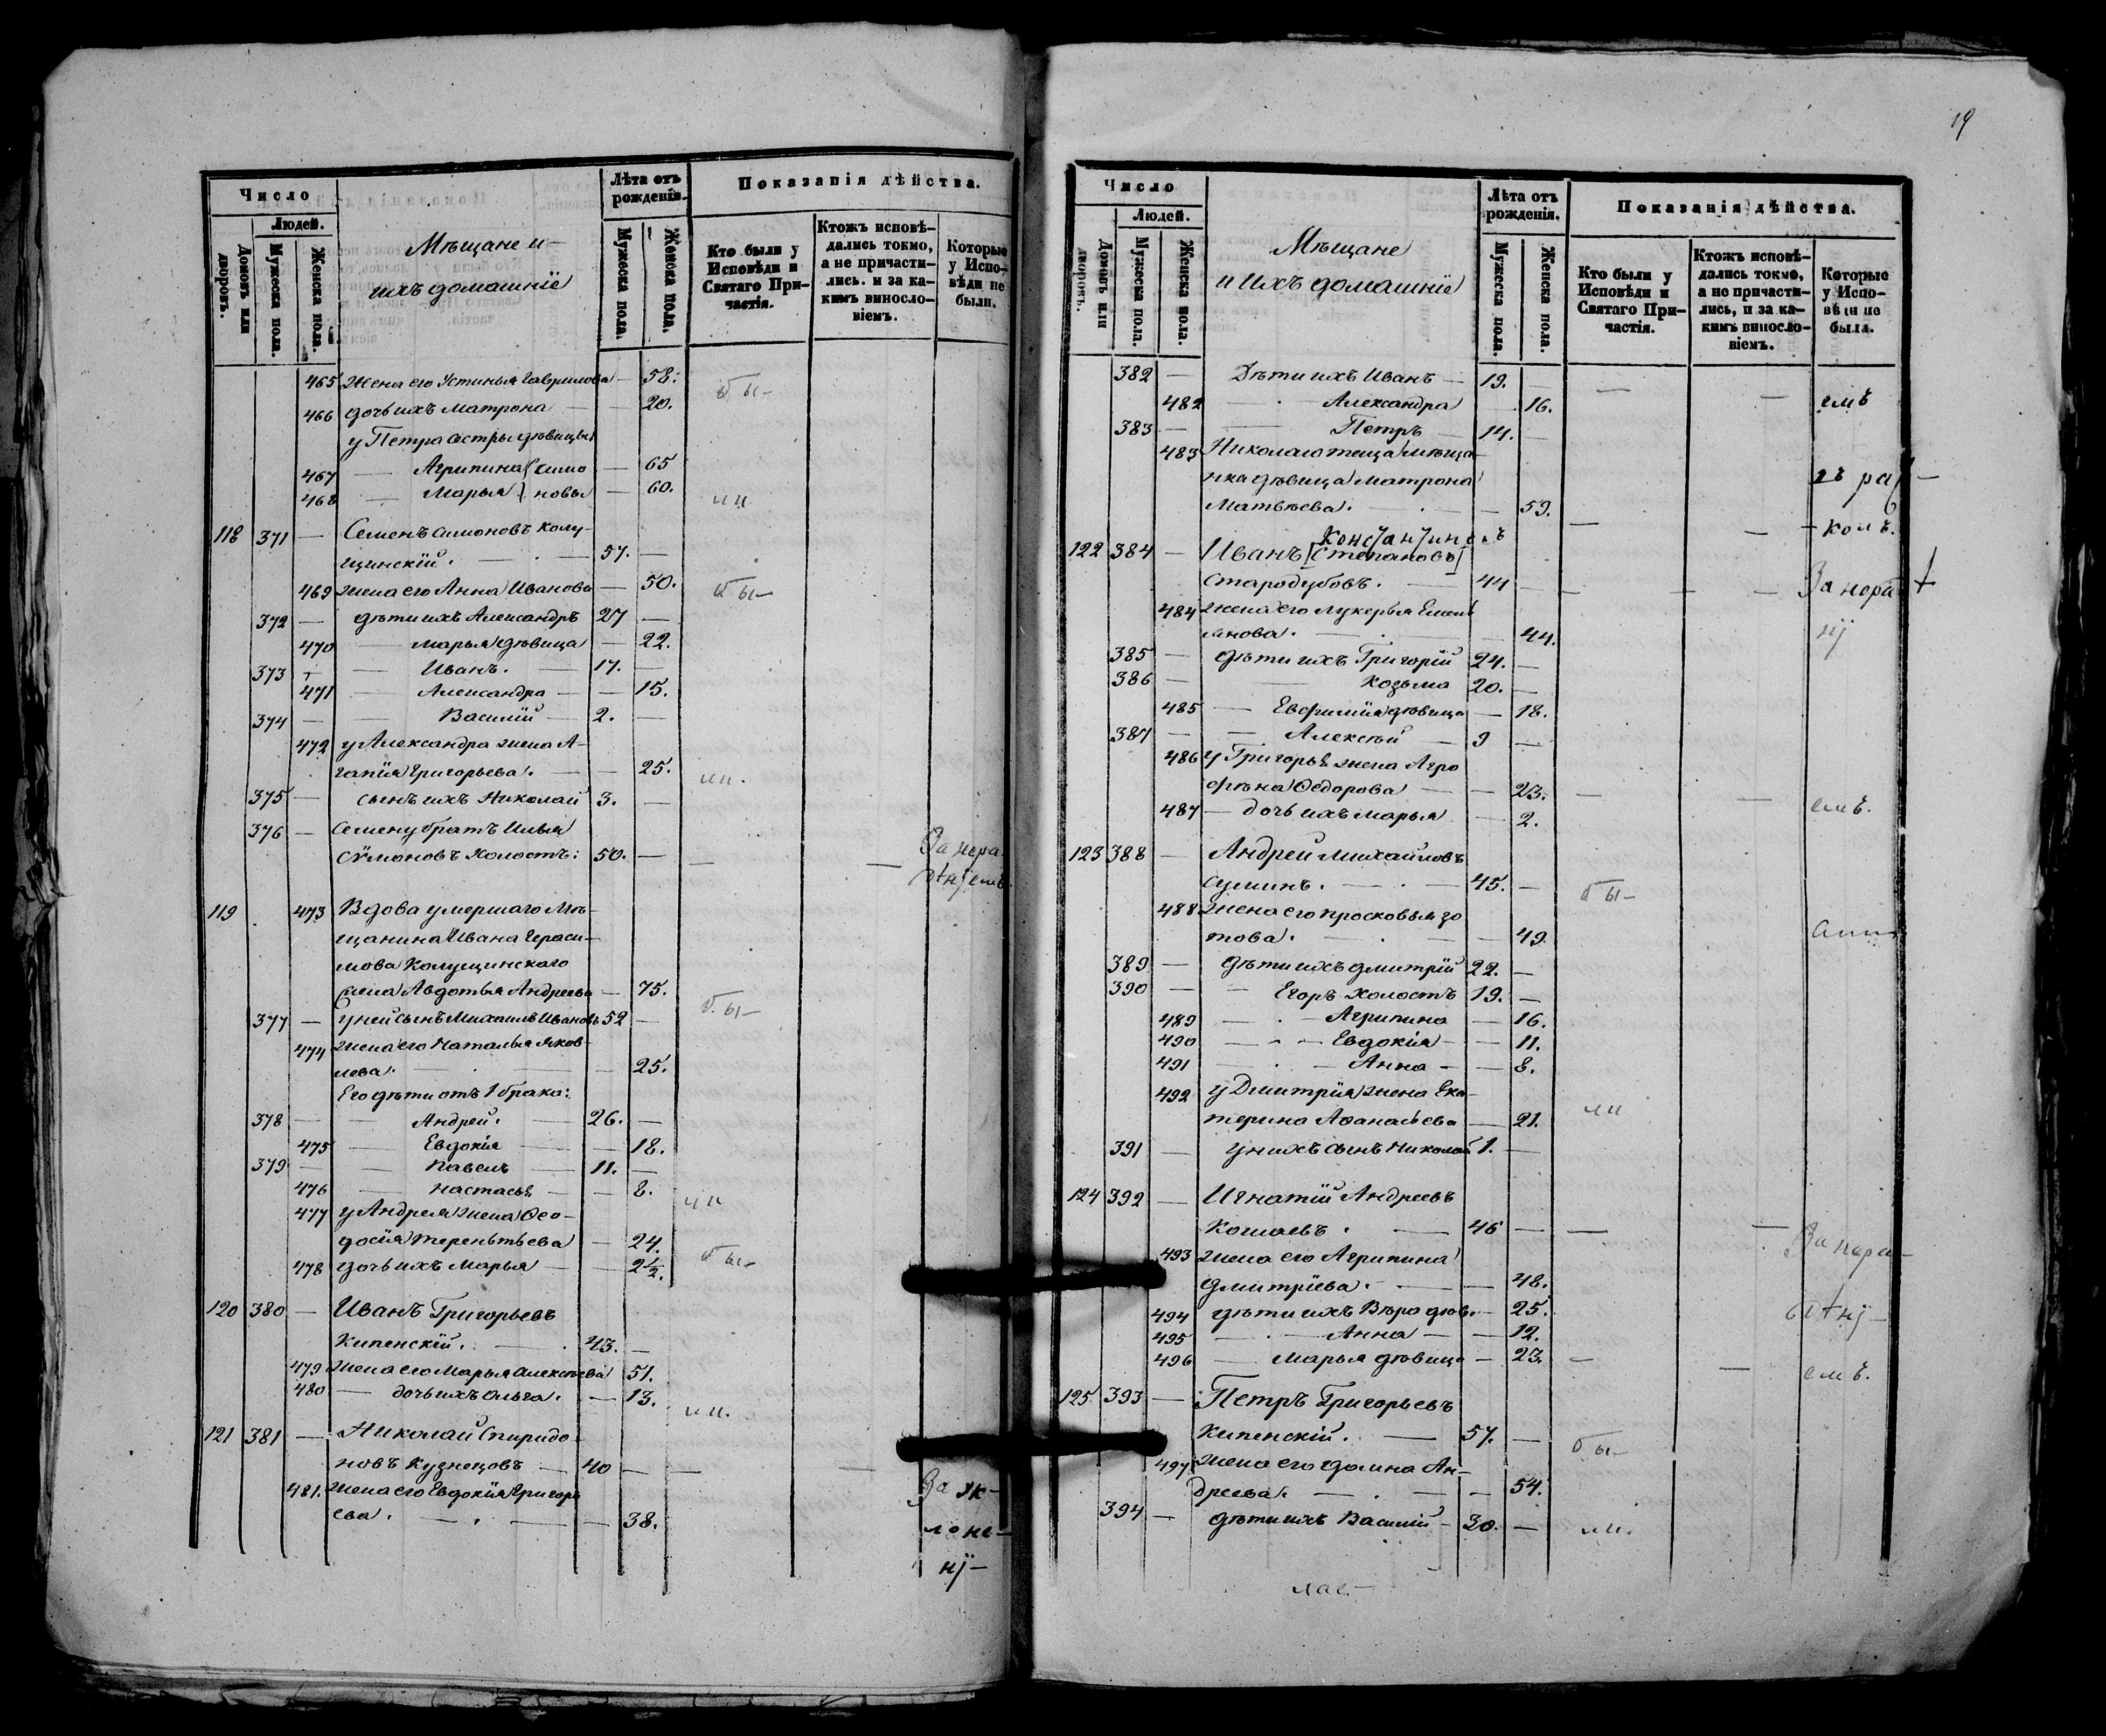 Число
Людей.
Домовъ или дворовъ.
Мужеска пола.
Женска пола.
Мѣщане и
ихъ домашнїе
Лѣта отъ рожденія.
Мужеска пола.
Женска пола.
Показанія дѣйства.
Кто были у Исповѣди и Святаго Причастія.
Ктожъ исповѣдались токмо, а не причастились. и за какимъ винословіемъ.
Которые у Исповѣди не были.
465 Жена его Устинья Гаврилова — 58. бы-
466 дочь ихъ Матрона — 20.
у Петра сестры дѣвицы
467 — Агрипина Симо — 65
468 — Марья новы — 60. ли
118 371 — Семенъ Симоновъ Колу-
щинскїй. — 57. —
469 жена его Анна Иванова — 50. бы-
372 — дѣти ихъ Александръ 27 —
470 — Марья дѣвица — 22.
373 — Иванъ. — 17. —
471 — Александра — 15.
374 — Василїй — 2. —
472 у Александра жена А-
гапїя Григорьева. — 25. ли.
375 — сынъ ихъ Николай 3. —
376 — Семену братъ Илья
Сѵмоновъ холостъ: 50. — — — За нера-
дѣнїемъ.
119 473 Вдова умершаго Мѣ-
щанина Ивана Гераси-
мова Колущинскаго
жена Авдотья Андреева — 75. бы-
377 — у ней сынъ Михаилъ Ивановъ 52 —
474 жена его Наталья Яков-
лева. — 25.
Его дѣти отъ 1 брака:
378 — Андрей. — 26. —
475 — Евдокїя — 18.
379 — Павелъ — 11. —
476 — Настасья — 8. ли
477 у Андрея жена Ѳео-
досїя Терентьева — 24.
478 дочь ихъ Марья — 2½. бы-
120 380 — Иванъ Григорьевъ
Кипенскїй. — 43. —
479 жена его Марья Алексѣева 51.
480 — дочь ихъ Ольга. — 13. ли.
121 381 — Николай Спиридо-
новъ Кузнецовъ — 40 — — — За ук-
481. жена его Евдокїя Григорь
ева. — 38. лоне-
нї-
19
Число
Людей.
Домовъ или дворовъ.
Мужеска пола.
Женска пола.
Мѣщане
и ихъ домашнїе
Лѣта отъ рожденія.
Мужеска пола.
Женска пола.
Показанія дѣйства.
Кто были у Исповѣди и Святаго Причастія.
Ктожъ исповѣдались токмо, а не причастились, и за какимъ винословіемъ.
Которые у Исповѣди не были.
382 — Дѣти ихъ Иванъ — 19. — — — емъ
482 — Александра — 16.
383 — Петръ — 14. —
483 Николаю теща мѣща-
нка дѣвица Матрона въ рас-
Матвѣева. — 59. — — колъ.
Константиновъ
122 384 — Иванъ [Степановъ]
Стародубовъ. — 44 — — — За нерадѣ
484 жена его Лукерья Емель
янова. — 44. нї
385 — дѣти ихъ Григорїй 24. —
386 — Козьма 20. —
485 — Евфимїя дѣвица — 18.
387 — Алексѣй — 9 —
486 у Григорья жена Агро
фѣна Ѳедорова — 23. — — емъ.
487 — дочь ихъ Марья — 2.
123 388 — Андрей Михайловъ
Суминъ. — 45. — бы-
488 жена его Просковья Зо
това. — 49.
389 — дѣти ихъ Дмитрїй 22. —
390 — Егоръ холостъ 19. —
489 — Агрипина — 16.
490 — Евдокїя — 11.
491 — Анна — 8.
492 у Дмитрїя жена Ека-
терина Аѳанасьева — 21. ли
391 — у нихъ сынъ Николай 1. —
124 392 — Игнатїй Андреевъ
46 — — — За нера-
493 жена его Агрипина
Дмитрїева. — 48.
494 дѣти ихъ Вѣра дѣв. — 25. дѣнї-
495 — Анна — 12.
496 — Марья дѣвица — 23. — — емъ.
125 393 — Петръ Григорьевъ
Кипенскїй. — 57. — бы-
497 жена его Домна Ан-
дреева. — 54.
394 — дѣти ихъ Василїй — 30. — ли.